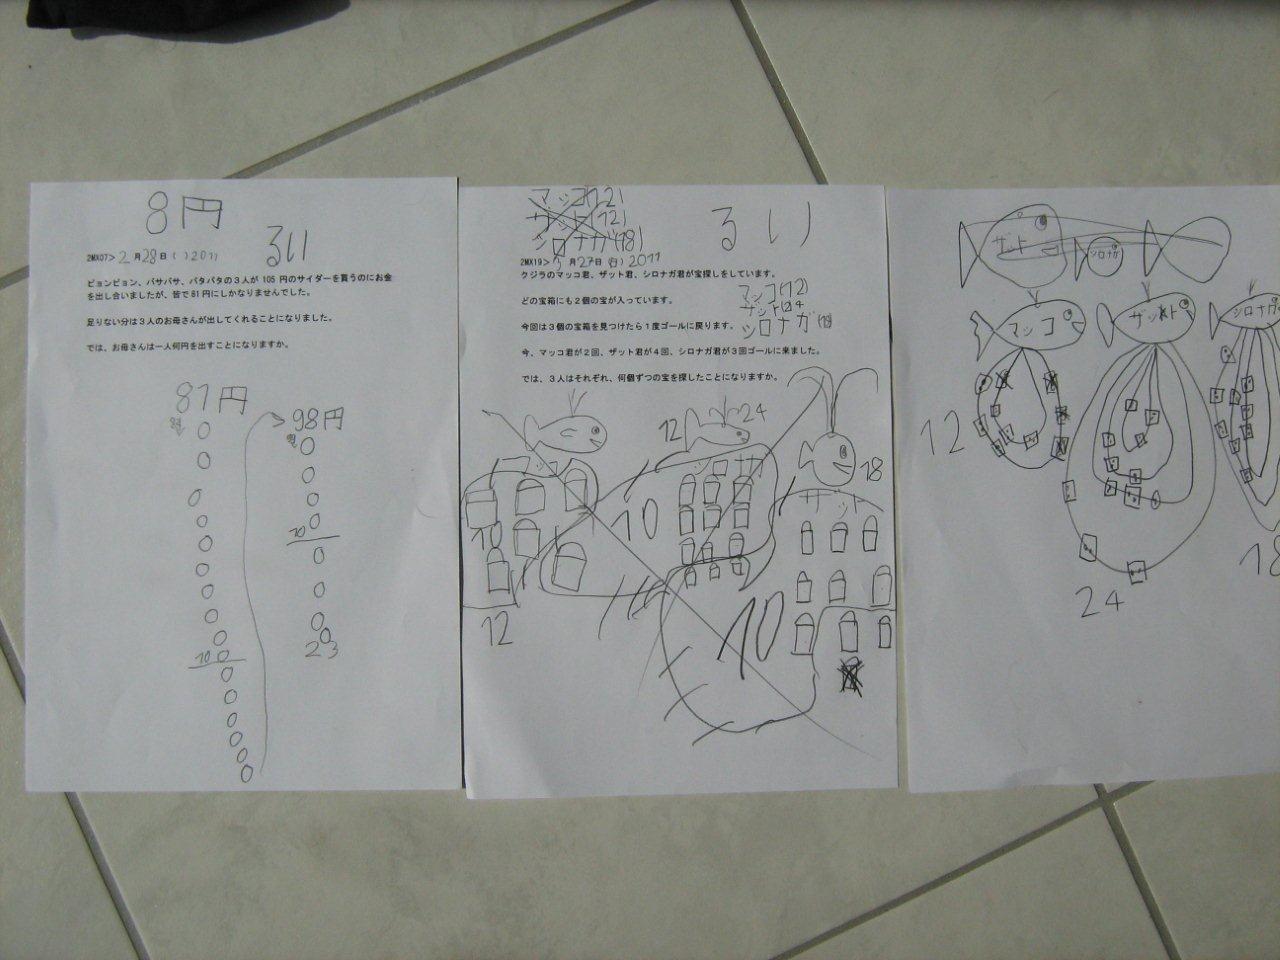 8円
るい
2MX07> 2月28日 ( ) 2011
ピョンピョン、バサバサ、パタパタの3人が 105 円のサイダーを買うのにお金
を出し合いましたが、皆で81円にしかなりませんでした。
足りない分は3人のお母さんが出してくれることになりました。
では、お母さんは一人何円を出すことになりますか。
81円
10
98円
10
23
マッコ(12)
ザット(12)
シロナガ(18)
るい
2MX19> 月27日(日)2011
クジラのマッコ君、ザット君、シロナガ君が宝探しをしています。
どの宝箱にも2個の宝が入っています。
今回は3個の宝箱を見つけたら1度ゴールに戻ります。
今、マッコ君が2回、ザット君が4回、シロナガ君が3回ゴールに来ました。
では、3人はそれぞれ、何個ずつの宝を探したことになりますか。
マッコ(12)
ザット(24
シロナガ(18)
12
24
18
ザット
10
10
10
12
ザット
シロナガ
マッコ
ザット
シロナガ
12
24
18